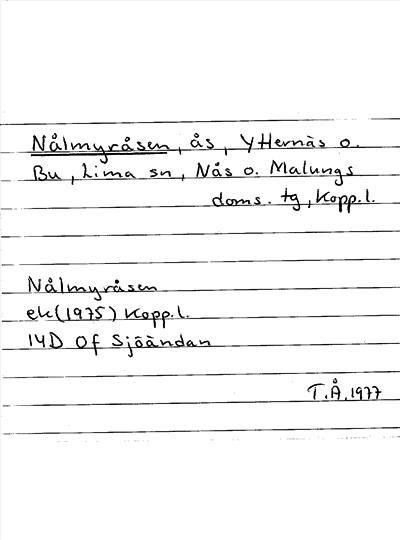 Nålmyråsen, ås, YHernäs o.
Bu, Lima sn, Nås o. Malungs
doms. tg, Kopp.l.
Nålmyråsen
ek(1975) Kopp.l.
14D 0f Sjöändan
T.Å.1977